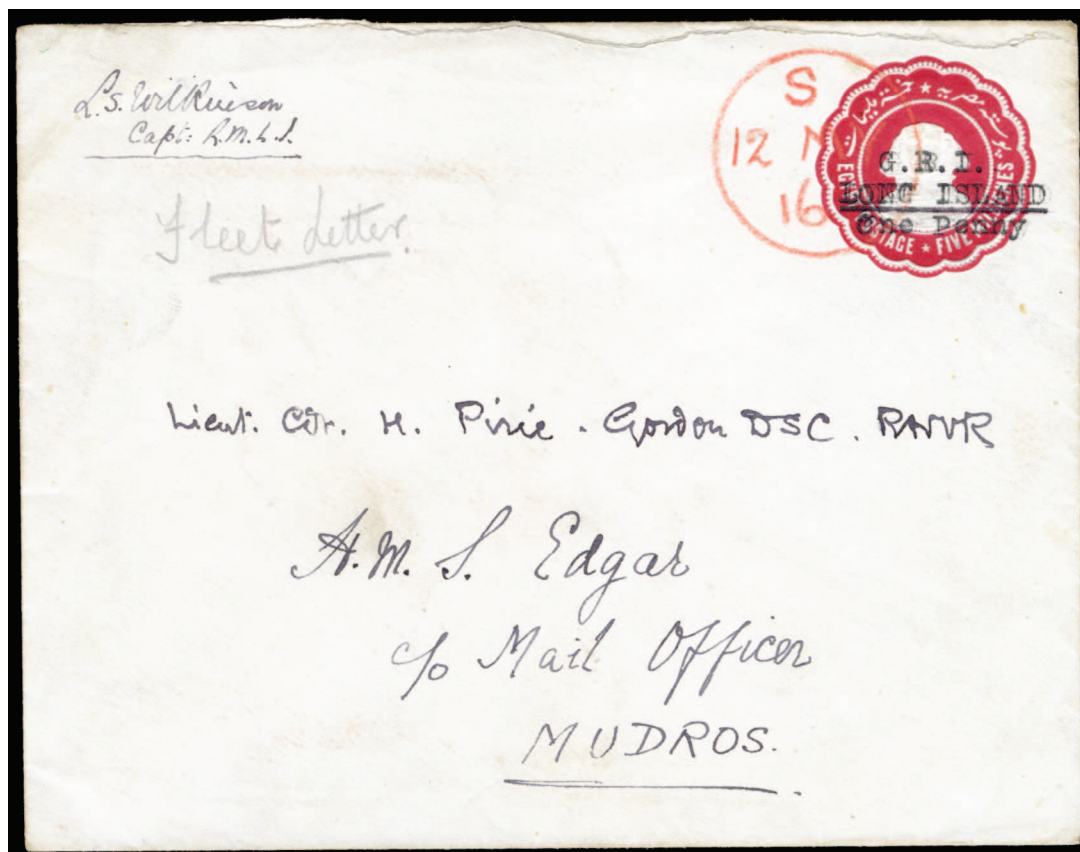 L.S. Wilkinson
Capt: R.M.L.I.
Fleet Letter.
S
12 M
16
G.R.I.
LONG ISLAND
One Penny
POSTAGE ★ FIVE
Lieut. Cdr. H. Pirie-Gordon DSC. RNVR
H.M.S. Edgar
c/o Mail Officer
MUDROS.